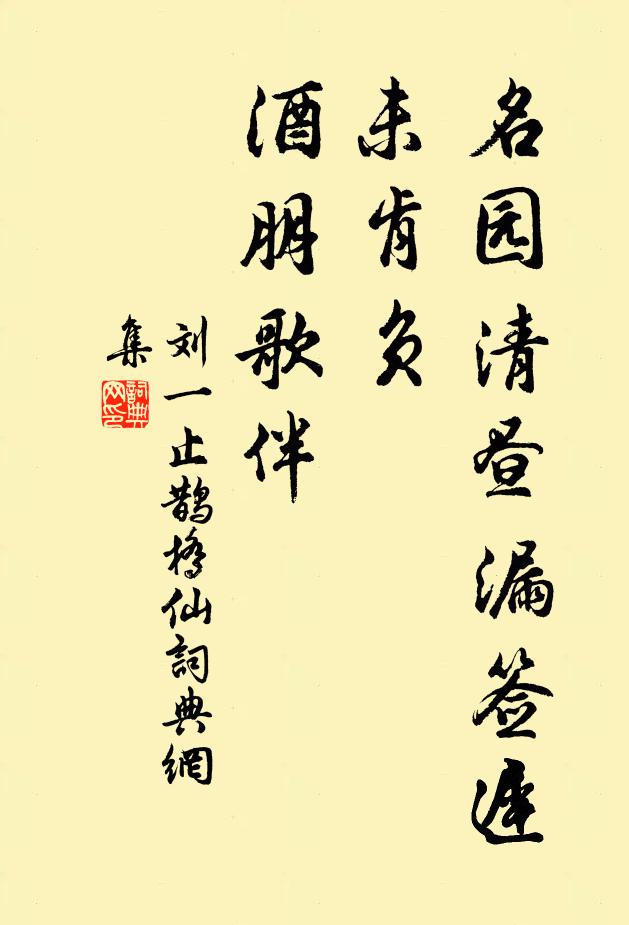 名园清昼漏签迟
未肯负
酒朋歌伴
刘一止鹊桥仙詞典網
集
詞典
网印